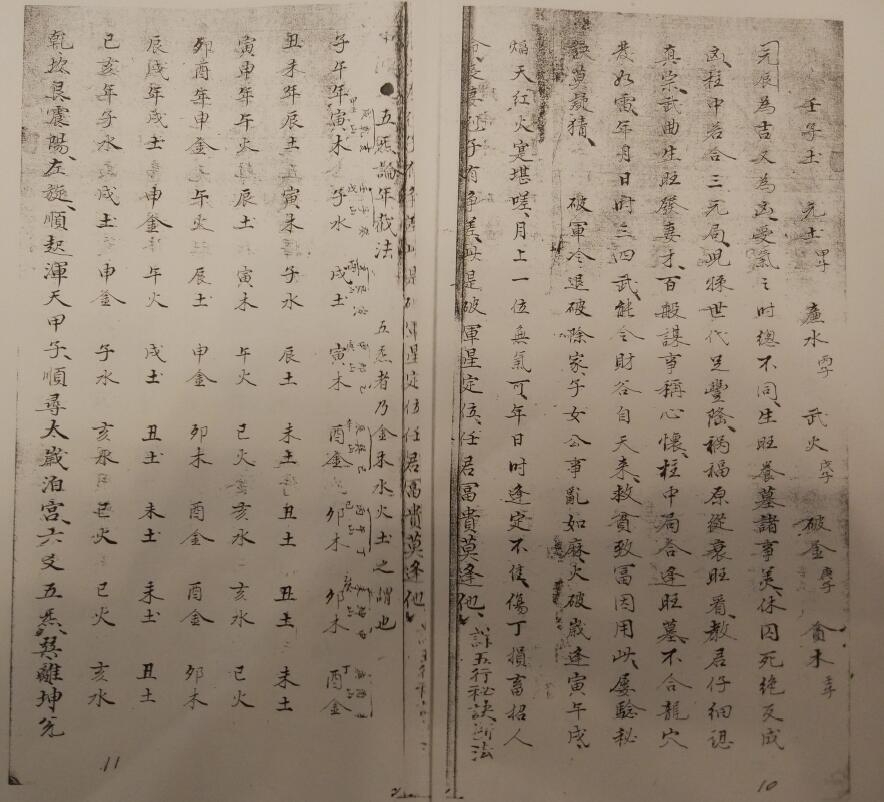 壬子土 元土甲子 廉水丙子 武火戊子 破金庚子 貪木壬子
元辰為吉又為凶、受氣之時總不同、生旺養墓諸事美、休囚死絕反成
凶、柱中若合三元局、児孫世代足豐隆、禍福原從衰旺看、教君仔細認
真宗、武曲生旺發妻才、百般謀事稱心懷、柱中局合逢旺墓、不合龍穴
發如雷、年月日時三四武、能令財谷自天来、救貧致冨因用此、屡驗秘
訣莫疑猜、 破軍冷退破除家、子女公事亂如麻、火破歲逢寅午戌、
焰天紅火寔堪嗟、月上一位無氣可、年日時逢定不佳、傷丁損畜招人
命、長妻 子有争差、此是破軍星定位、任君冨貴莫逢他、 訣五行秘訣断法
五炁論年截法 五炁者乃金木水火土之謂也
子午年寅木 子水 戌土 寅木 酉金 卯木 卯木 酉金
丑未年辰土 寅木 子水 辰土 未土 丑土 丑土 未土
寅申年午火 辰土 寅木 午火 巳火 亥水 亥水 巳火
卯酉年申金 午火 辰土 申金 卯木 酉金 酉金 卯木
辰戌年戌土 申金 午火 戌土 丑土 未土 未土 丑土
巳亥年子水 戌土 申金 子水 亥水 巳火 巳火 亥水
乾坎艮震陽、左旋、順起渾天甲子、順尋太歲泊宮、六爻五炁、巽離坤兌
11
10